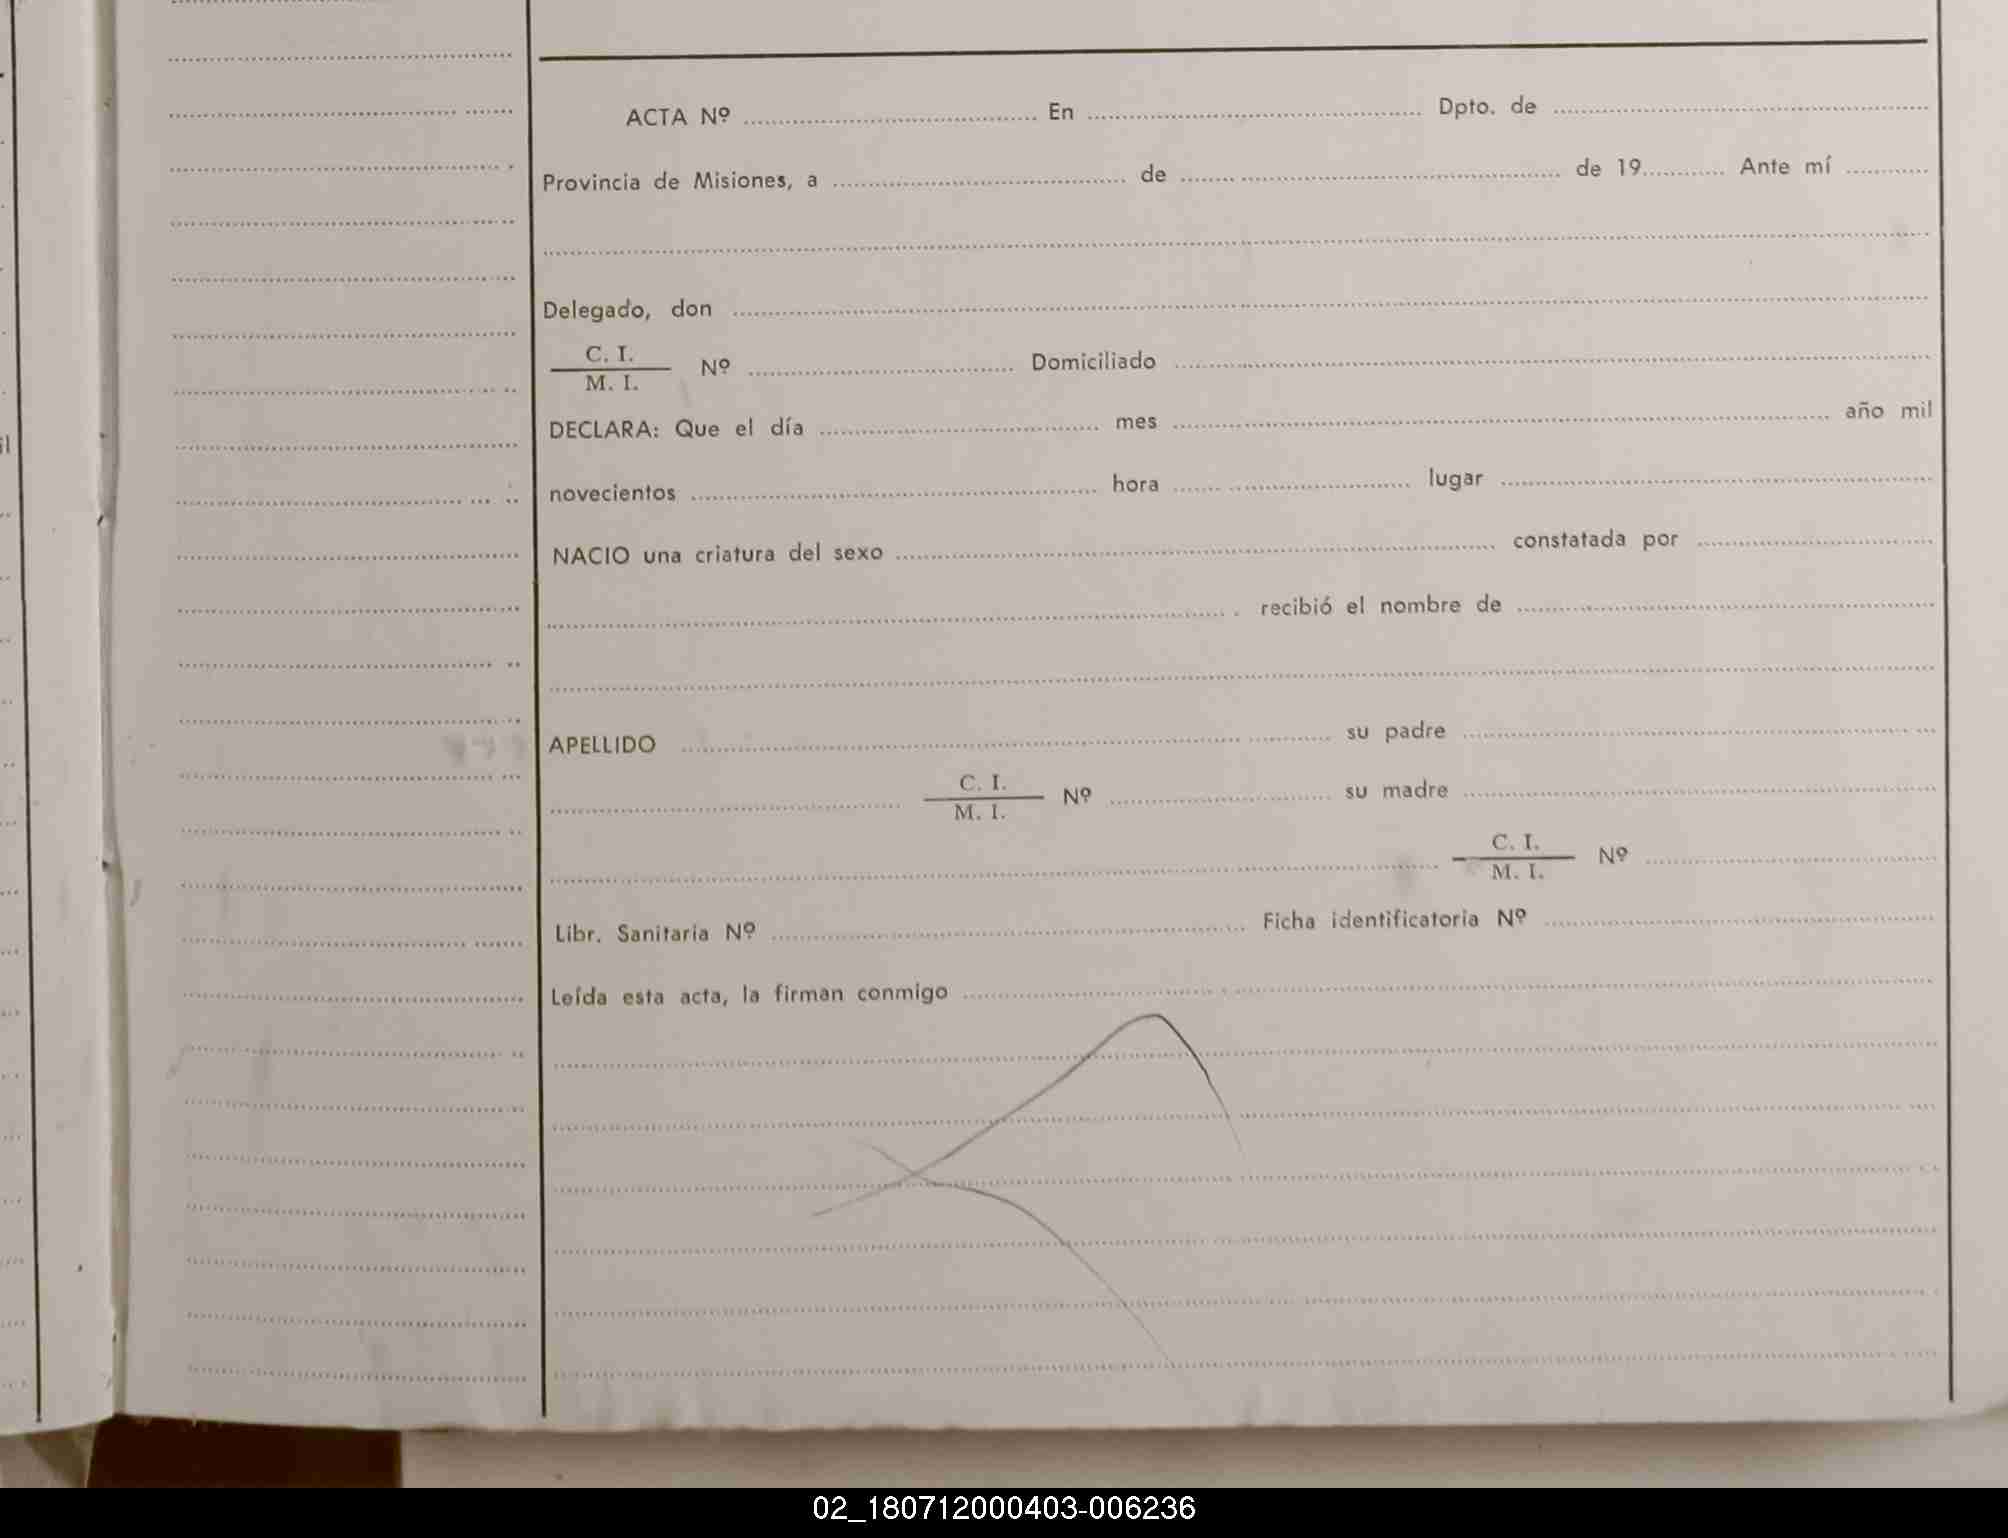 ACTA Nº ........ En ........ Dpto. de ........
Provincia de Misiones, a ........ de ........ de 19........ Ante mí ........
Delegado, don ........
C. I.
M. I. Nº ........ Domiciliado ........
DECLARA: Que el día ........ mes ........ año mil
novecientos ........ hora ........ lugar ........
NACIO una criatura del sexo ........ constatada por ........
........ recibió el nombre de ........
APELLIDO ........ su padre ........
C. I.
M. I. Nº ........ su madre ........
C. I.
M. I. Nº ........
Libr. Sanitaria Nº ........ Ficha identificatoria Nº ........
Leída esta acta, la firman conmigo ........
02_180712000403-006236